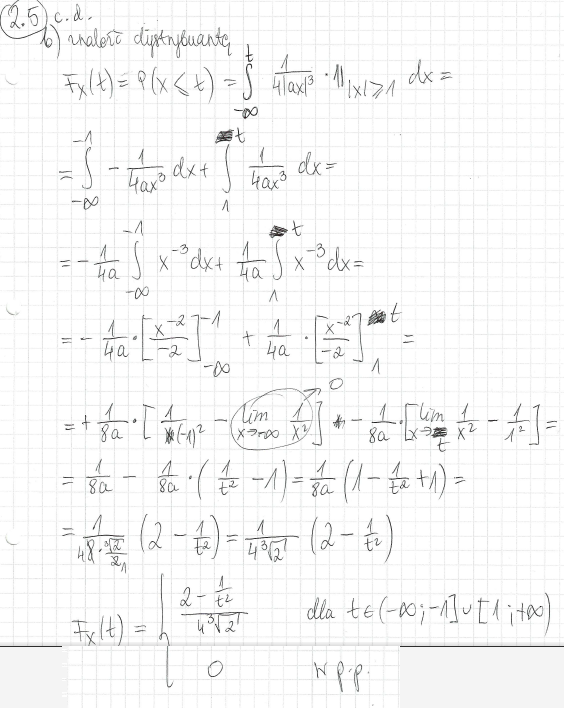 2.5 c.d.
b) znaleźć dystrybuantę
F_X(t) = P(X ≤ t) = ∫_{-∞}^{t} 1/(4|ax|³) · 1_{|x|≥1} dx =
= ∫_{-∞}^{-1} - 1/(4ax³) dx + ∫_{1}^{t} 1/(4ax³) dx =
= - 1/(4a) ∫_{-∞}^{-1} x^{-3} dx + 1/(4a) ∫_{1}^{t} x^{-3} dx =
= - 1/(4a) · [x^{-2}/(-2)]_{-∞}^{-1} + 1/(4a) · [x^{-2}/(-2)]_{1}^{t} =
= + 1/(8a) · [1/(-1)² - lim_{x→-∞} 1/x²] → 0 - 1/(8a) · [lim_{x→t} 1/x² - 1/1²] =
= 1/(8a) - 1/(8a) · (1/t² - 1) = 1/(8a) (1 - 1/t² + 1) =
= 1/(8 · ∛2/2) (2 - 1/t²) = 1/(4∛2) (2 - 1/t²)
F_X(t) = { (2 - 1/t²)/(4∛2) dla t ∈ (-∞; -1] ∪ [1; +∞)
0 w p.p.